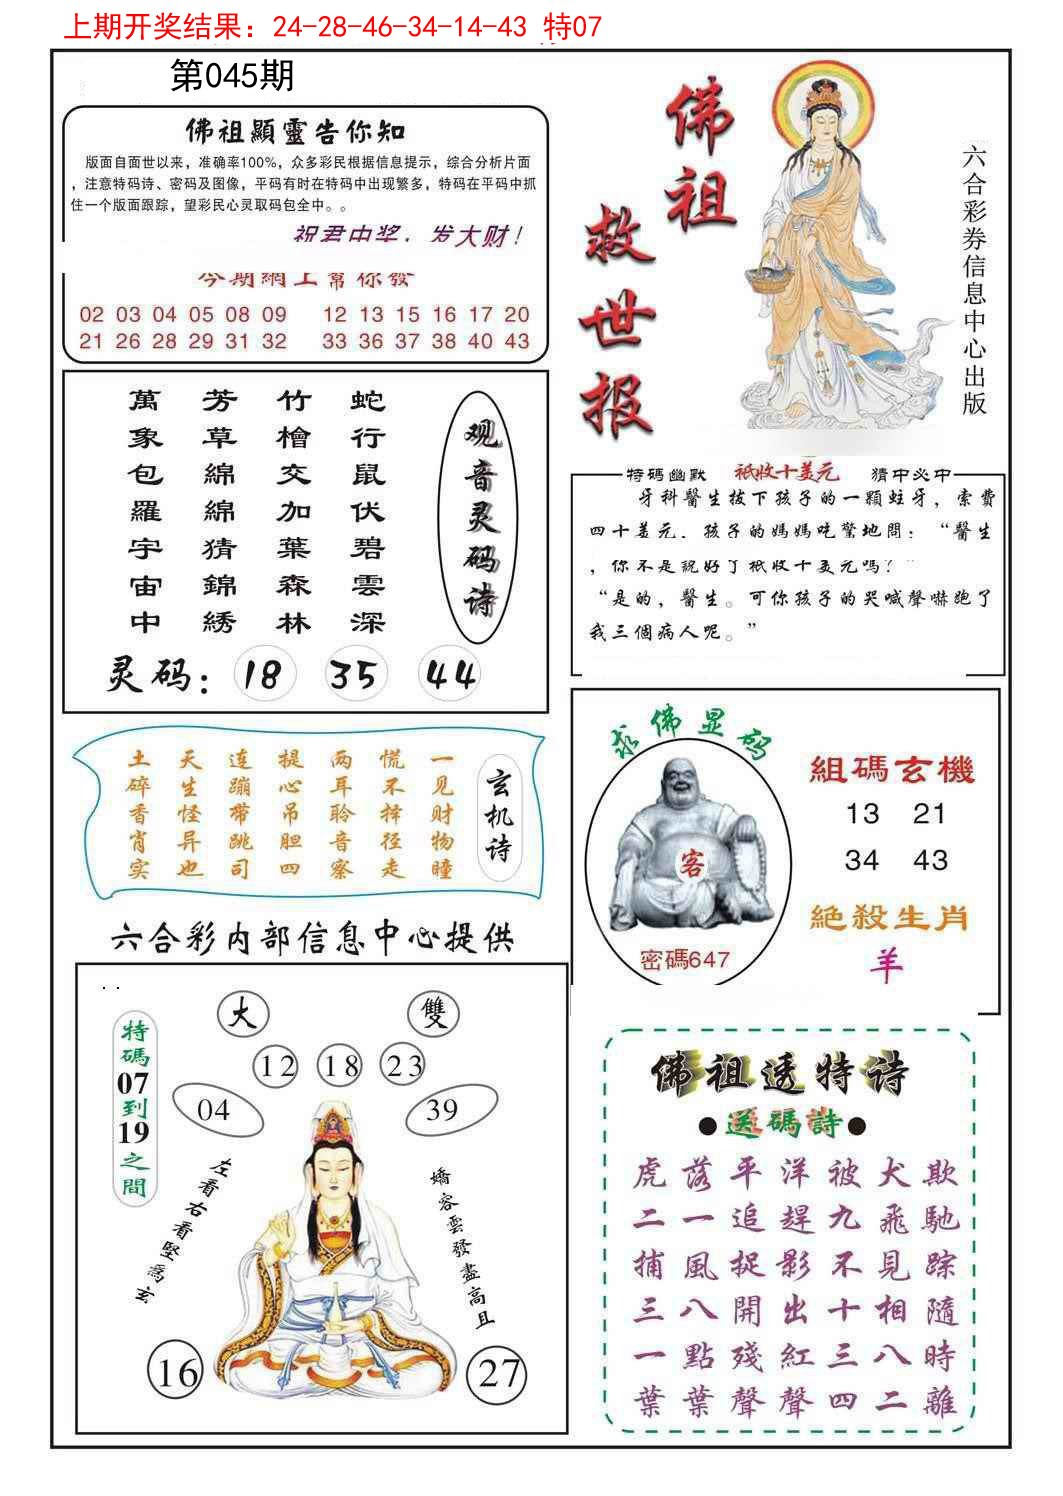 上期开奖结果：24-28-46-34-14-43 特07
第045期
佛祖顯靈告你知
版面自面世以来，准确率100%，众多彩民根据信息提示，综合分析片面
，注意特码诗、密码及图像，平码有时在特码中出现繁多，特码在平码中抓
住一个版面跟踪，望彩民心灵取码包全中。。
祝君中奖，发大财！
今期網上幫你發
02 03 04 05 08 09 12 13 15 16 17 20
21 26 28 29 31 32 33 36 37 38 40 43
佛祖
救世报
六合彩券信息中心出版
观音灵码诗
蛇行鼠伏碧雲深
竹檜交加葉森林
芳草綿綿猜錦綉
萬象包羅宇宙中
灵码：18 35 44
特碼幽默 祇收十美元 猜中必中
牙科醫生拔下孩子的一顆蛀牙，索費
四十美元．孩子的媽媽吃驚地問：“醫生
，你不是說好了祇收十美元嗎？”
“是的，醫生。可你孩子的哭喊聲嚇跑了
我三個病人呢。”
玄机诗
一见财物瞳
慌不择径走
两耳聆音察
提心吊胆四
连蹦带跳司
天生怪异也
土碎香肖实
求佛显码
客
密碼647
組碼玄機
13 21
34 43
絕殺生肖
羊
六合彩内部信息中心提供
大 雙
12 18 23
04 39
特碼07到19之間
左看右看堅為玄
嬌容雲發盡高且
16 27
佛祖透特诗
●送碼詩●
虎落平洋被犬欺
二一追趕九飛馳
捕風捉影不見踪
三八開出十相隨
一點殘紅三八時
葉葉聲聲四二離